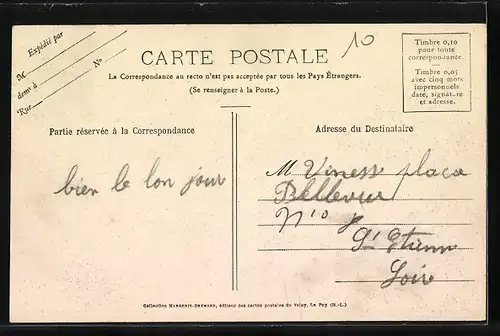 Expédié par
M
demt à
Rue
No
CARTE POSTALE
10
La Correspondance au recto n'est pas acceptée par tous les Pays Étrangers.
(Se renseigner à la Poste.)
Timbre 0,10
pour toute
correspondance.
Timbre 0,05
avec cinq mots
impersonnels
date, signature
et adresse.
Partie réservée à la Correspondance
bien le bon jour
Adresse du Destinataire
M Viness plaça
Bellevue
No 8
St Etienne
Loire
Collection MARGERIT-BRÉMOND, éditeur des cartes postales du Velay, Le Puy (H.-L.)